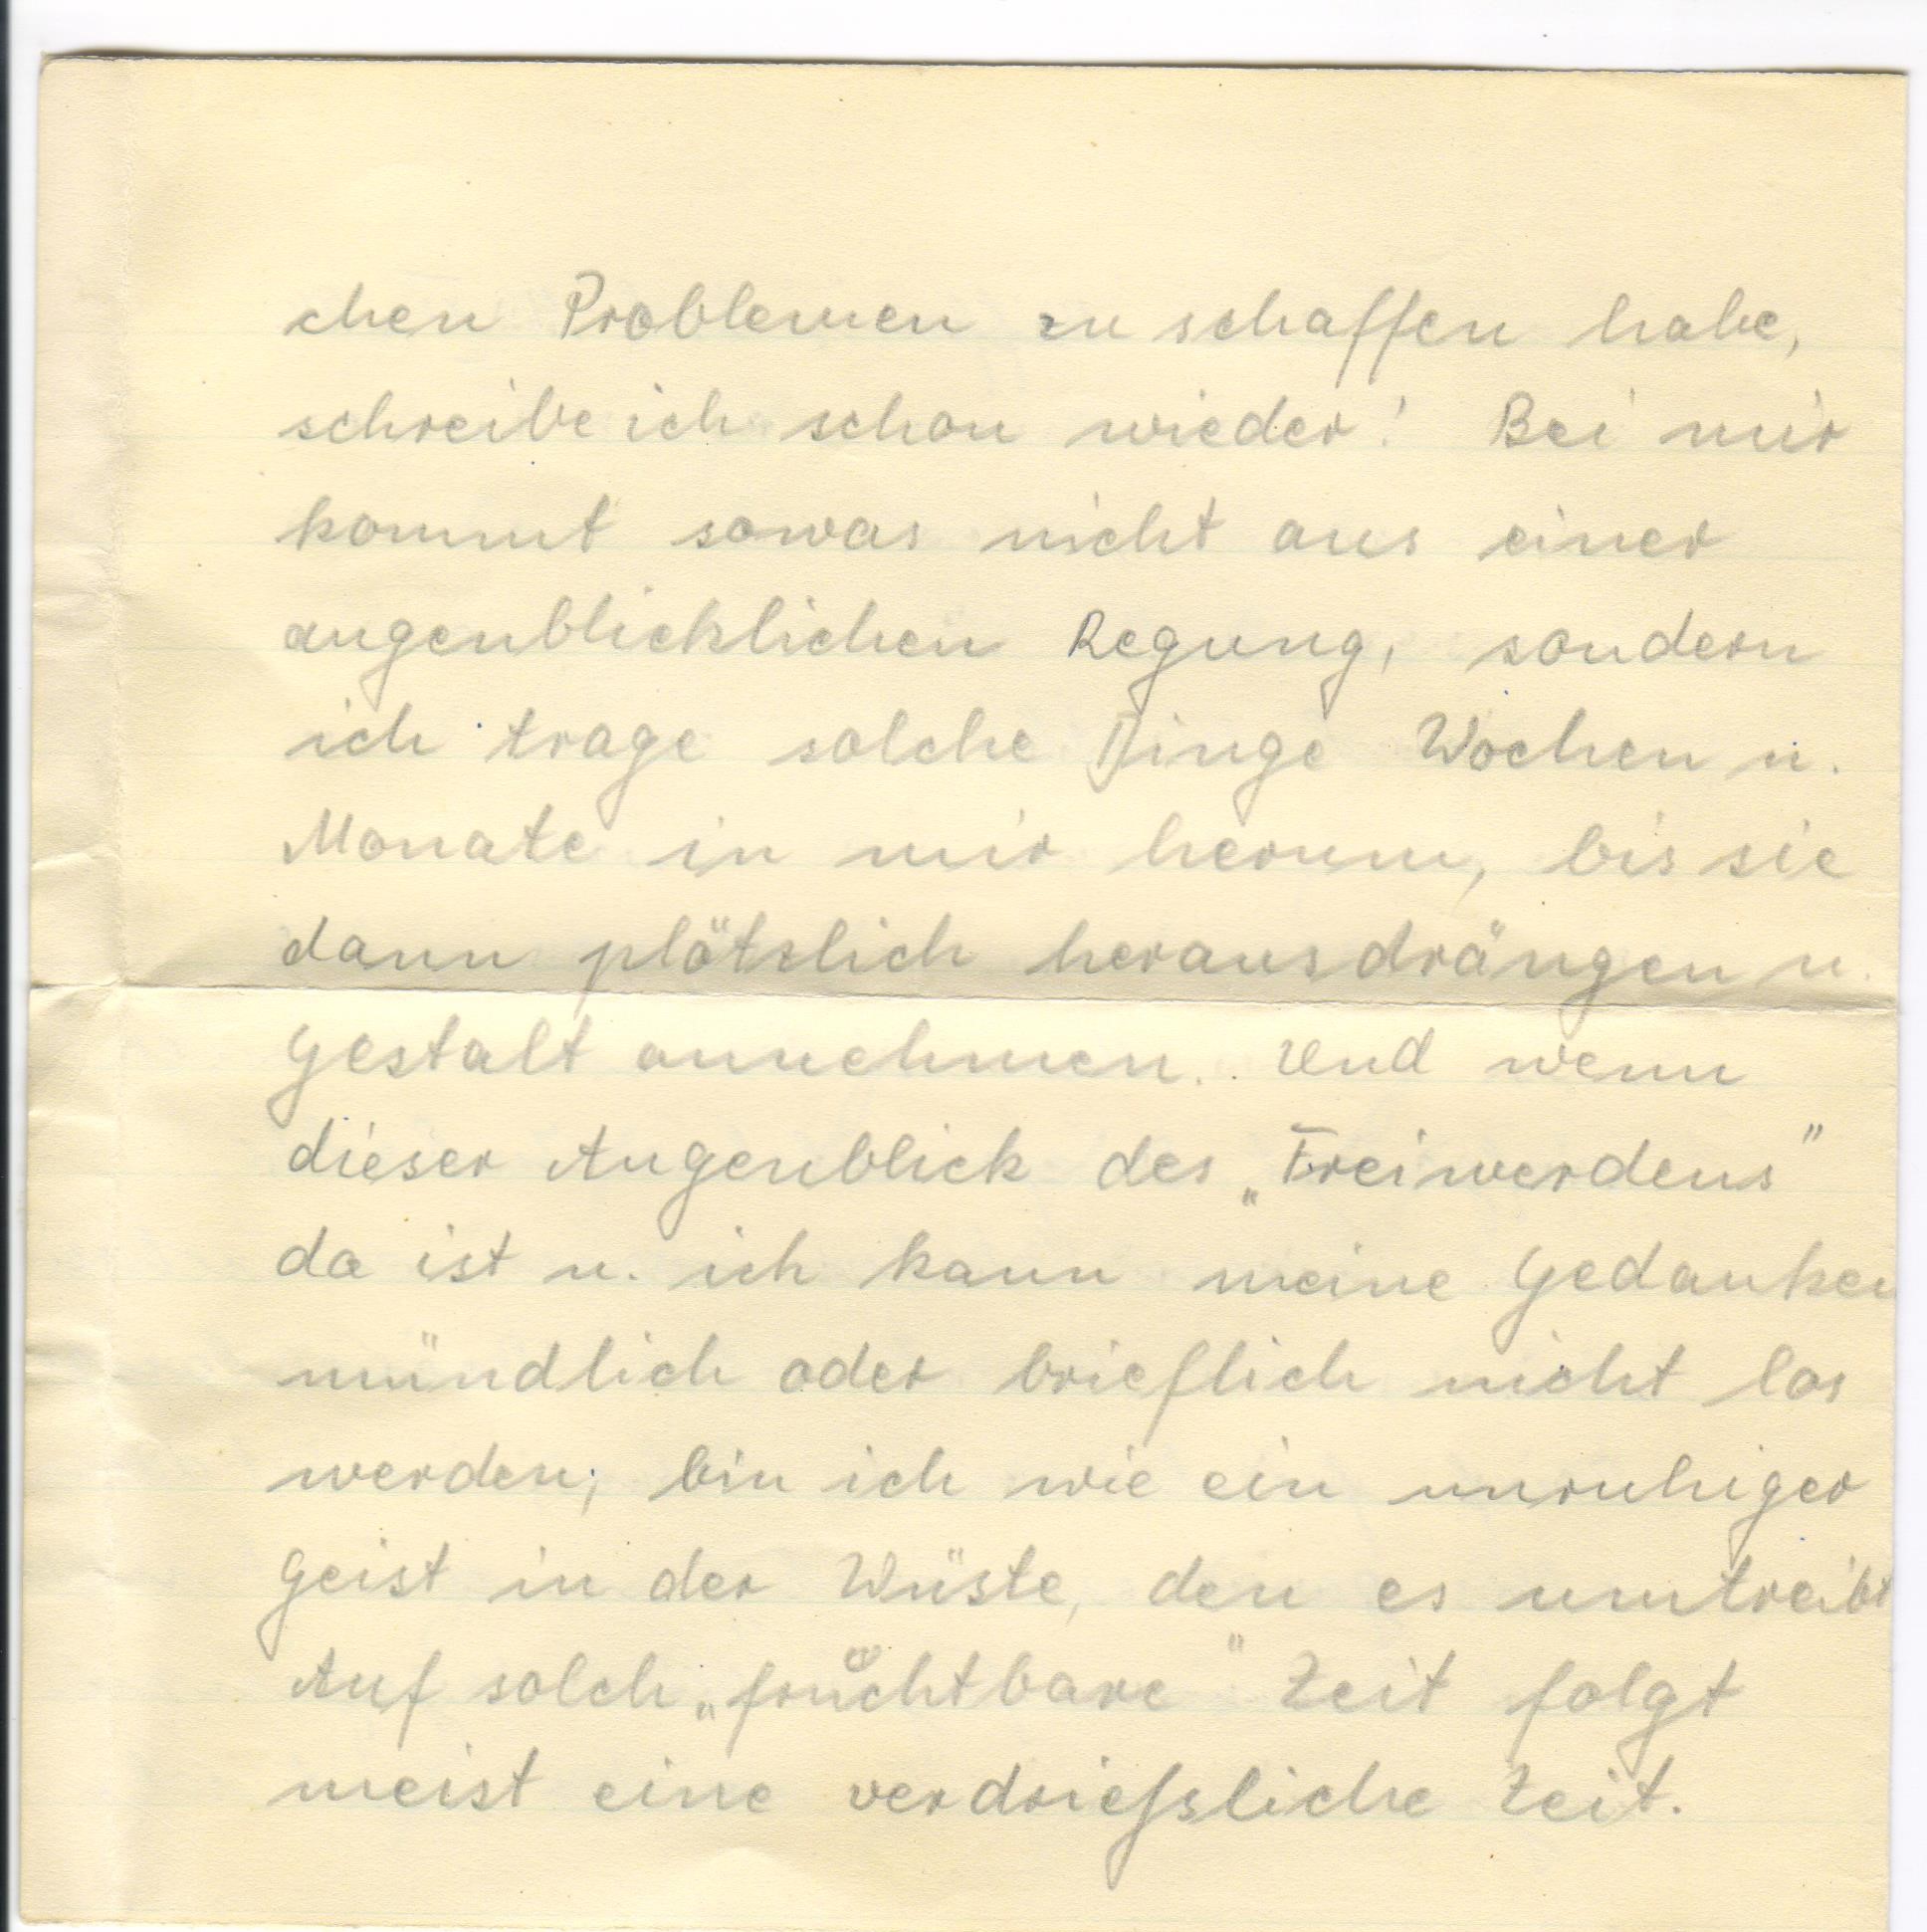 chen Problemen zu schaffen habe,
schreibe ich schon wieder! Bei mir
kommt sowas nicht aus einer
augenblicklichen Regung, sondern
ich trage solche Dinge Wochen u.
Monate in mir herum, bis sie
dann plötzlich herausdrängen u.
Gestalt annehmen. Und wenn
dieser Augenblick des „Freiwerdens"
da ist u. ich kann meine Gedanken
mündlich oder brieflich nicht los
werden, bin ich wie ein unruhiger
Geist in der Wüste, den es umtreibt
Auf solch „fruchtbare" Zeit folgt
meist eine verdriessliche Zeit.